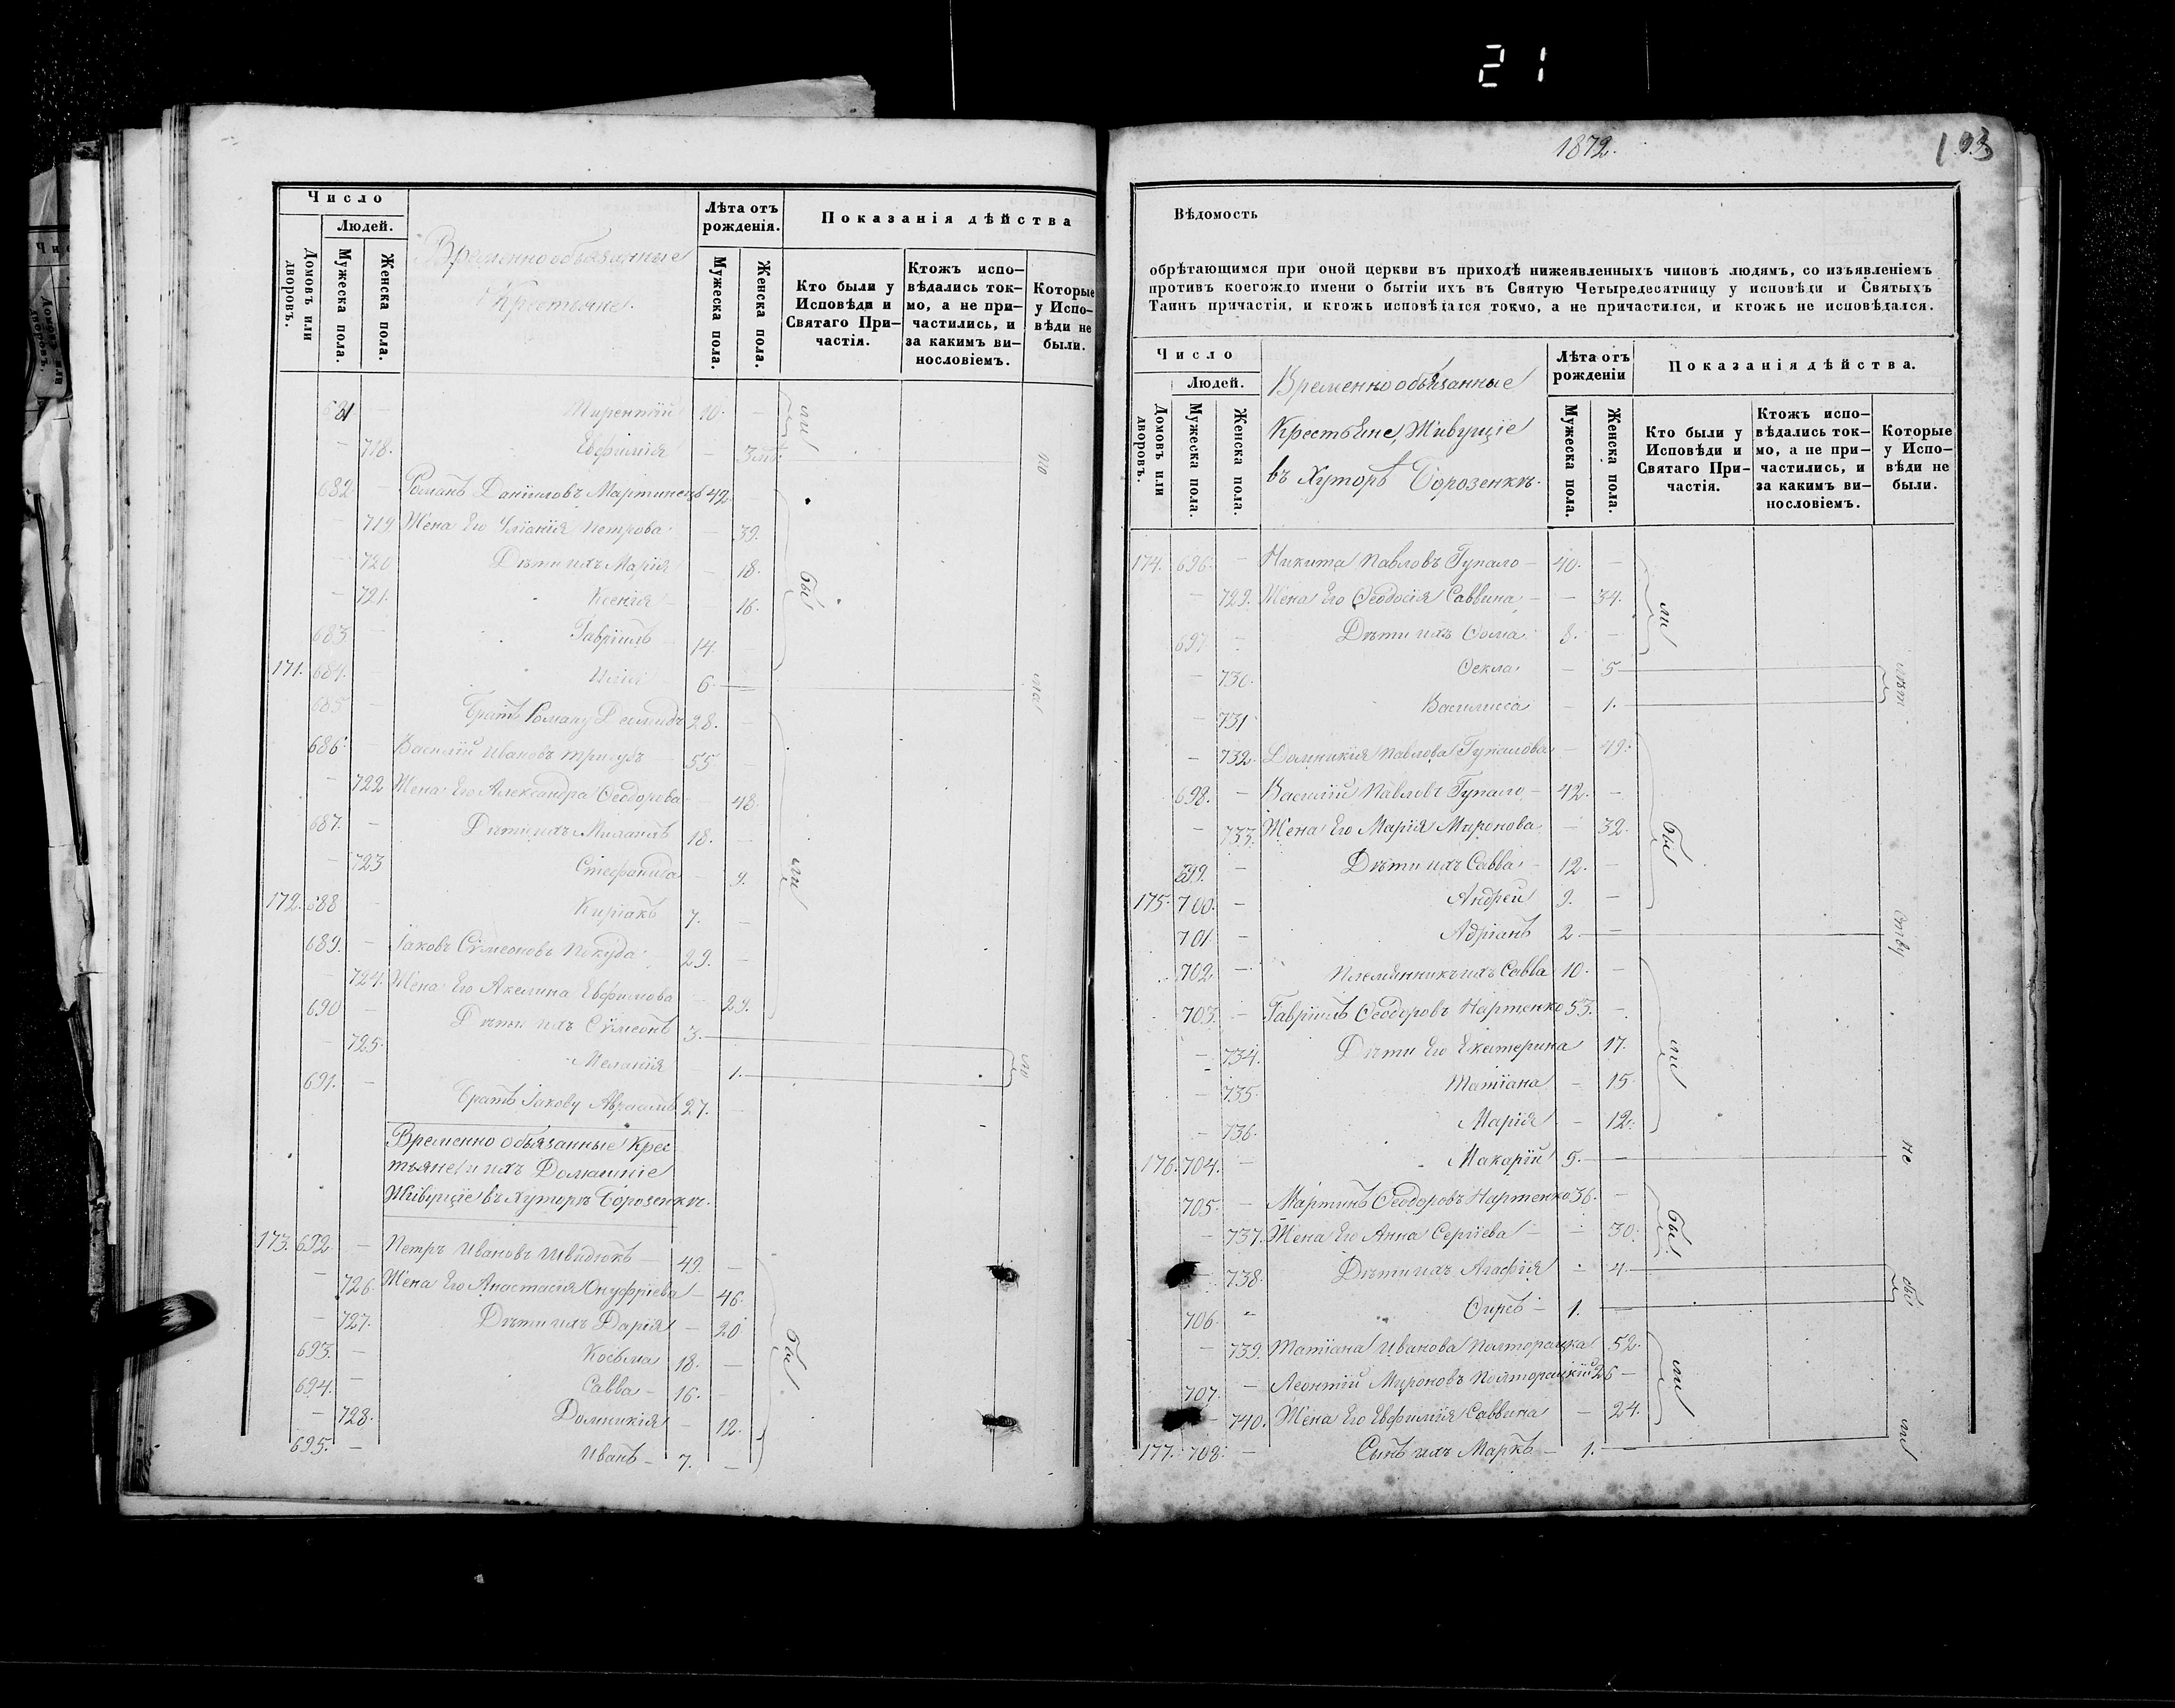 21
Число
Людей.
Домовъ или дворовъ.
Мужеска пола.
Женска пола.
Временнообязанные
Крестьяне.
Лѣта отъ рожденія.
Мужеска пола.
Женска пола.
Показанія дѣйства
Кто были у Исповѣди и Святаго Причастія.
Ктожъ исповѣдались токмо, а не причастились, и за какимъ винословіемъ.
Которые у Исповѣди не были.
681 — 10. —
— 718. Евфимія — 3
682. — Романъ Даніиловъ Мартинецъ 42
— 719 Жена Его Уліанія Петрова — 39.
— 720 Дѣти ихъ Марія — 18.
— 721. Ксенія — 16.
683 — Гавріилъ 14. —
171. 684. — Илія 6. —
685 — Братъ Роману Демидъ 28. —
686. — Василій Ивановъ 55 —
— 722 Жена Его Александра Ѳеодорова — 48.
687. — Дѣти ихъ Михаилъ 18. —
— 723 Стефанида — 9.
172. 688 — Киріакъ 7. —
689. — Іаковъ Сѵмеоновъ Покуда 29. —
— 724. Жена Его Акелина Евфимова — 29.
690 — Дѣти ихъ Сѵмеонъ 3. —
— 725. Меланія — 1.
691. — Братъ Іакову Авраамъ 27. —
Временно обязанные Крес
тьяне и ихъ Домашніе
Живущіе въ Хуторѣ Борозенкѣ.
173. 692. — Петръ Ивановъ Швидюкъ 49. —
— 726. Жена Его Анастасія Онуфріева — 46.
— 727. Дѣти ихъ Дарія — 20
693. — Косьма 18. —
694. — Савва 16. —
— 728. Домникія — 12.
695. — Иванъ 7. —
1872.
193
Вѣдомость
обрѣтающимся при оной церкви въ приходѣ нижеявленныхъ чиновъ людямъ, со изъявленіемъ
противъ коегождо имени о бытіи ихъ въ Святую Четыредесятницу у исповѣди и Святыхъ
Таинъ причастія, и ктожъ исповѣдался токмо, а не причастился, и ктожъ не исповѣдался.
Число
Людей.
Домовъ или дворовъ.
Мужеска пола.
Женска пола.
Временно обязанные
Крестьяне, Живущіе
въ Хуторѣ Борозенкѣ.
Лѣта отъ рожденія
Мужеска пола.
Женска пола.
Показанія дѣйства.
Кто были у Исповѣди и Святаго Причастія.
Ктожъ исповѣдались токмо, а не причастились, и за какимъ винословіемъ.
Которые у Исповѣди не были.
174. 696. — Никита Павловъ Гупало 40. —
— 729. Жена Его Ѳеодосія Саввина — 34.
697 — Дѣти ихъ Ѳома 8. —
— 730. Ѳекла — 5
— 731 Василисса — 1.
— 732. Домникія Павлова Гупалова — 49.
698. — Василій Павловъ Гупало 42. —
— 733. Жена Его Марія Миронова — 32.
699. — Дѣти ихъ Савва 12. —
175. 700. — Андрей 9. —
701 — Адріанъ 2 —
702 — Племянникъ ихъ Савва 10. —
703. — Гавріилъ Ѳеодоровъ Нартенко 53. —
— 734. Дѣти Его Екатерина 17.
— 735. Татіана — 15
— 736. Марія — 12.
176. 704. — Макарій 5. —
705. — Мартинъ Ѳеодоровъ Нартенко 36. —
— 737. Жена Его Анна Сергіева — 30.
— 738. Дѣти ихъ Агафія — 4.
706. — 1. —
— 739. Татіана Иванова Полторацка 52.
707. — Леонтій Мироновъ Полторацкій 26 —
— 740. Жена Его Евфимія Саввина — 24.
177. 708. — Сынъ ихъ Маркъ 1. —